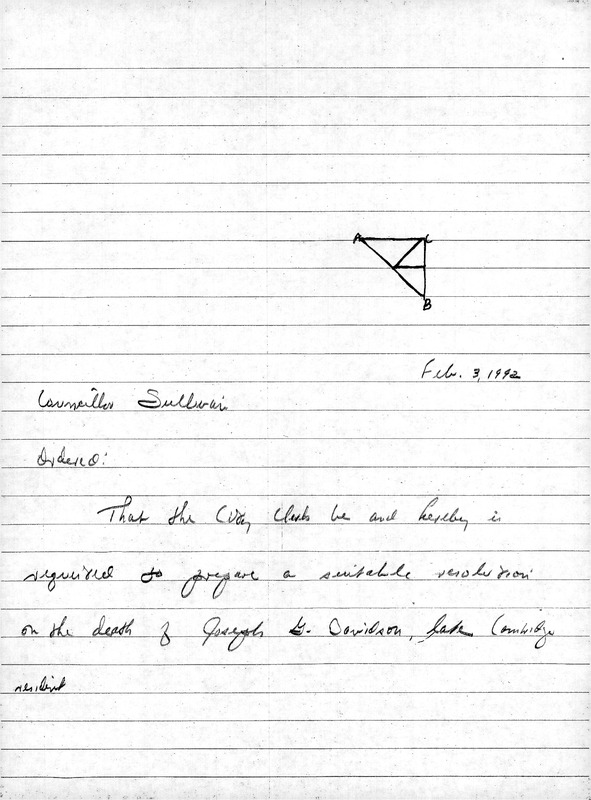 A C
B
Feb. 3, 1992
Councillor Sullivan
Ordered:
That the City Clerk be and hereby is
requested to prepare a suitable resolution
on the death of Joseph G. Davidson, late Cambridge
resident